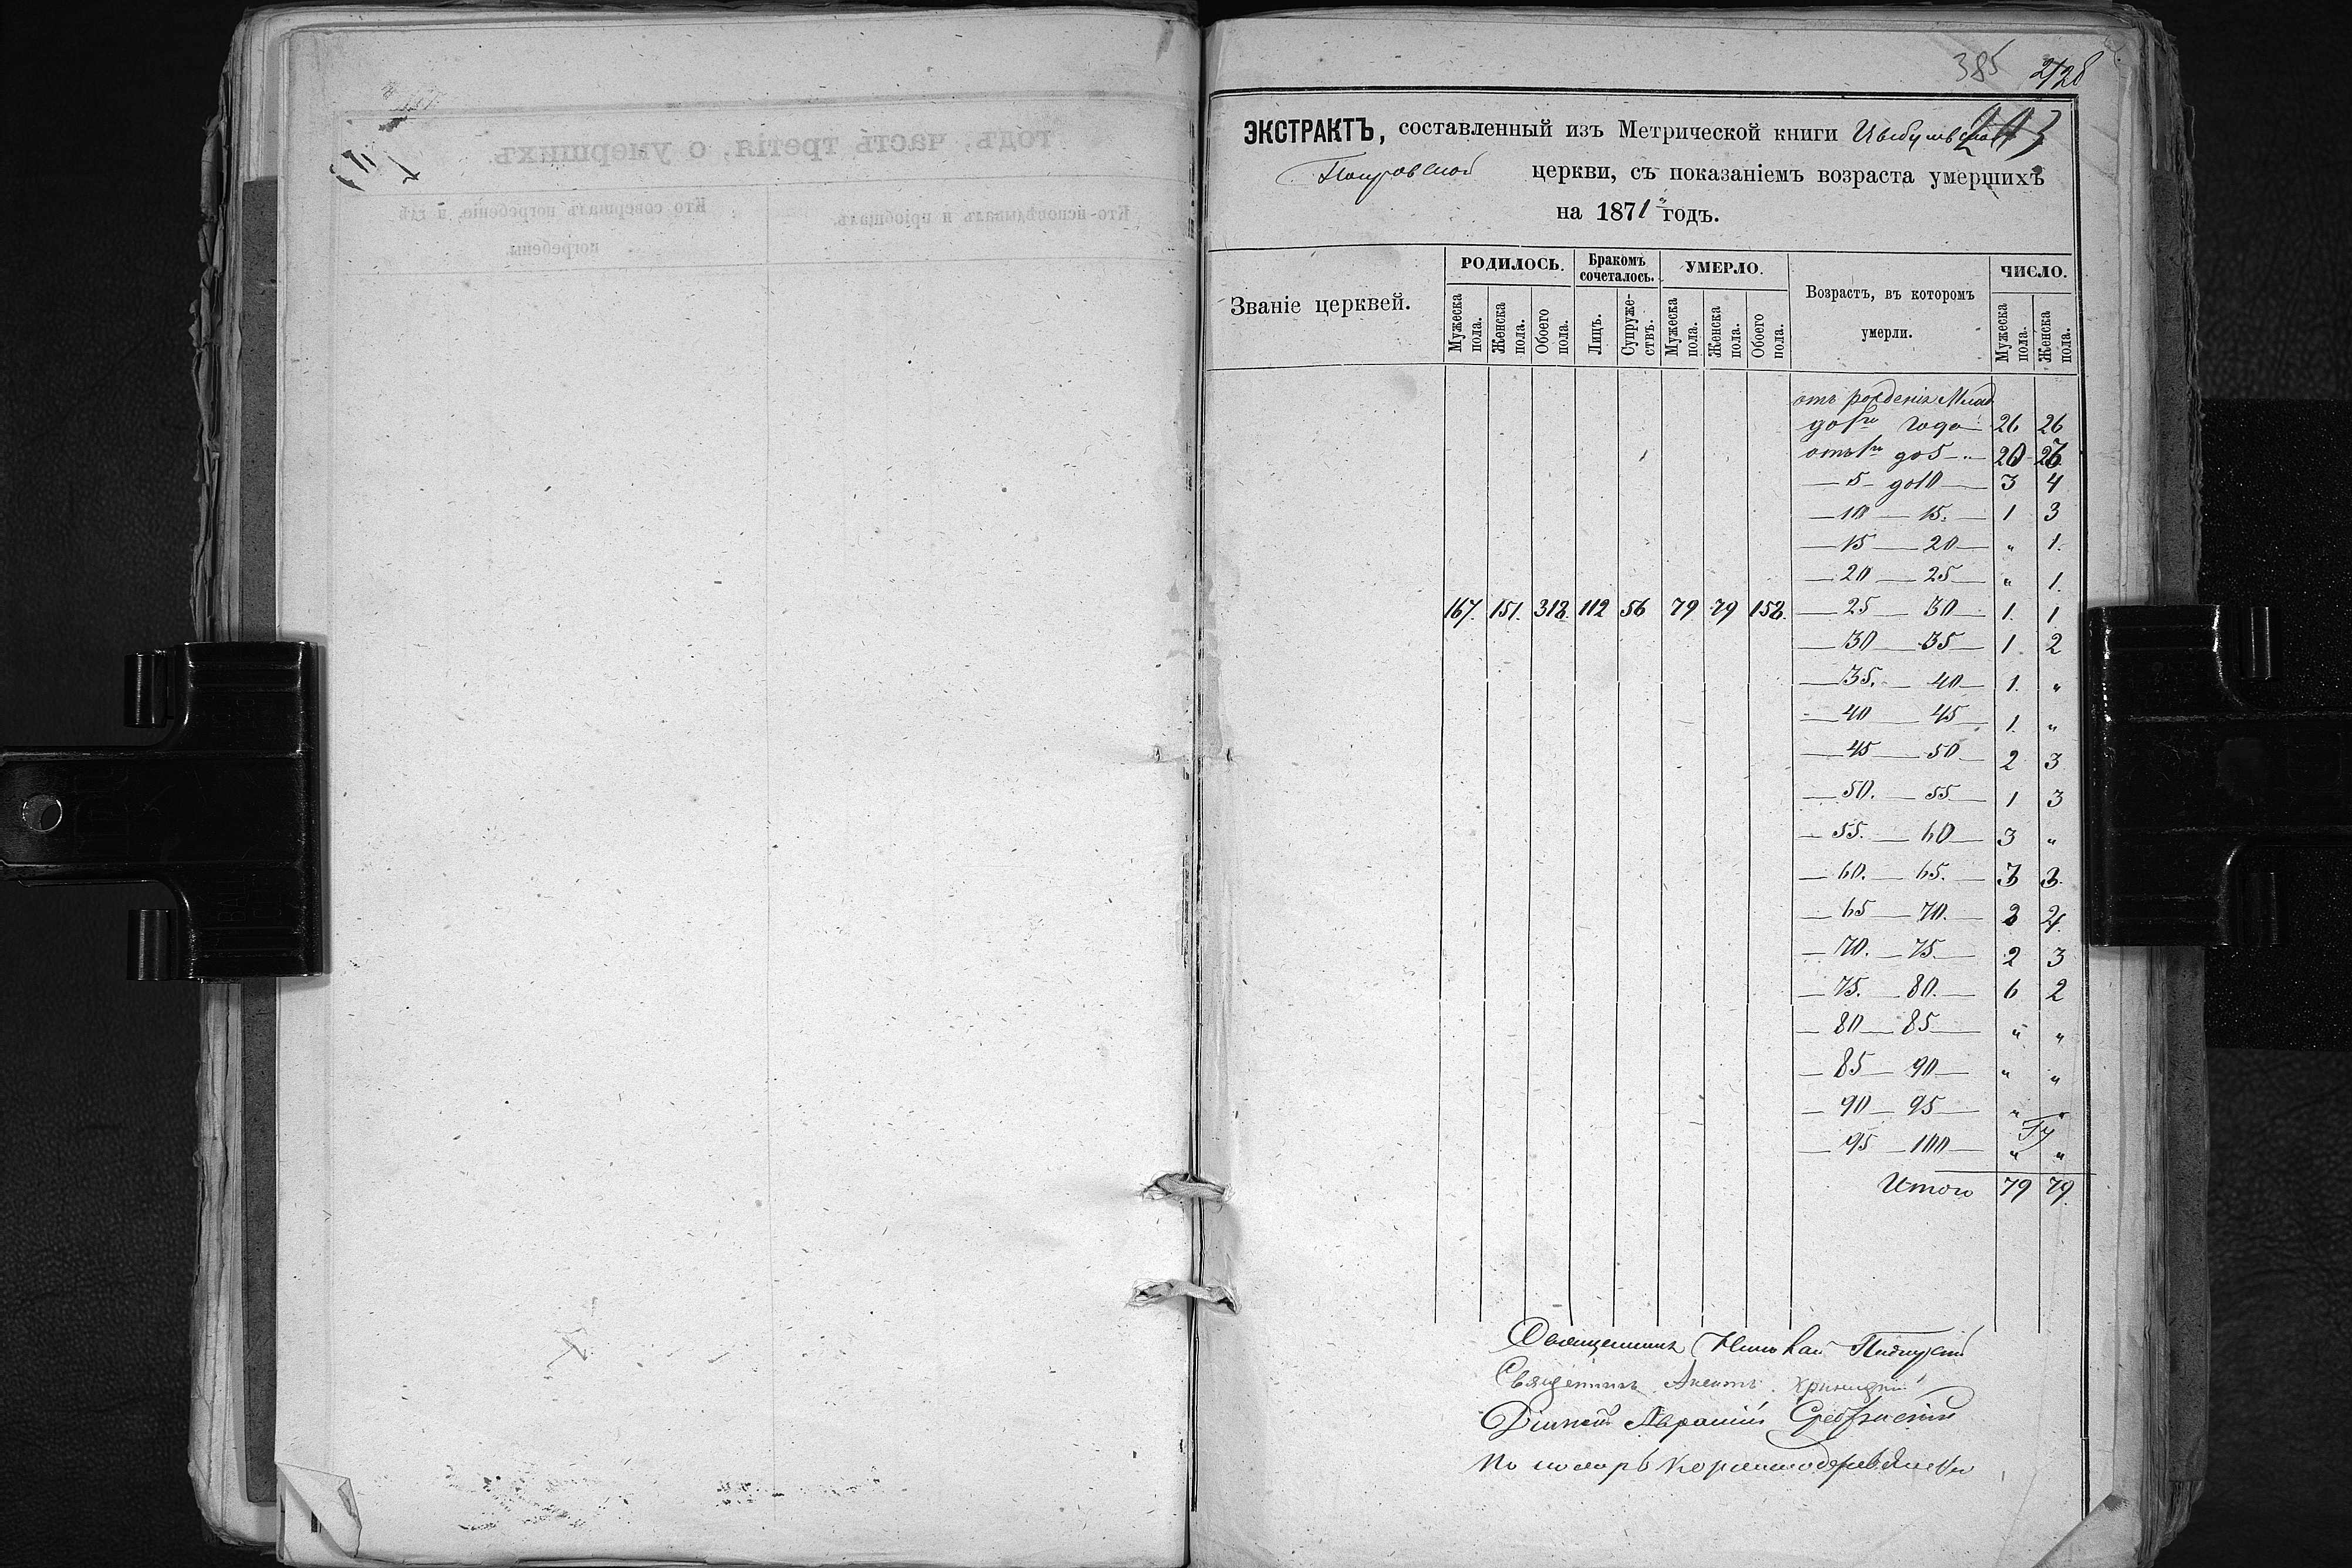 385
ЭКСТРАКТЪ, составленный изъ Метрической книги
Покровской церкви, съ показаніемъ возраста умершихъ
на 1871 годъ.
Званіе церквей. РОДИЛОСЬ. Бракомъ сочеталось. УМЕРЛО. Возрастъ, въ которомъ умерли. ЧИСЛО.
Мужеска пола. Женска пола. Обоего пола. Лицъ. Супружествъ. Мужеска пола. Женска пола. Обоего пола. Мужеска пола. Женска пола.
отъ рожденія
до 1го года 26 26
отъ 1го до 5 " 20 26
— 5 — до 10 — 3 4
— 10 — 15. — 1 3
— 15 — 20 — " 1.
— 20 — 25 — " 1.
167. 151. 318. 112 56 79 79 158. — 25 — 30 — 1. 1
— 30 — 35 — 1. 2
— 35. — 40 — 1. "
— 40 — 45 — 1. "
— 45 — 50 — 2 3
— 50. — 55 — 1 3
— 55. — 60 — 3 "
— 60. — 65. — 3 3.
— 65 — 70. — 3
— 70. — 75. — 2 3
— 75. — 80. — 6 2
— 80 — 85 — " "
— 85 — 90 — " "
— 90 — 95 — " "
— 95 — 100 — " "
Итого 79 79.
Священникъ
Священникъ
годъ, часть третія, о умершихъ.
Кто исповѣдывалъ и пріобщалъ.
Кто совершалъ погребеніе, и гдѣ
погребены.